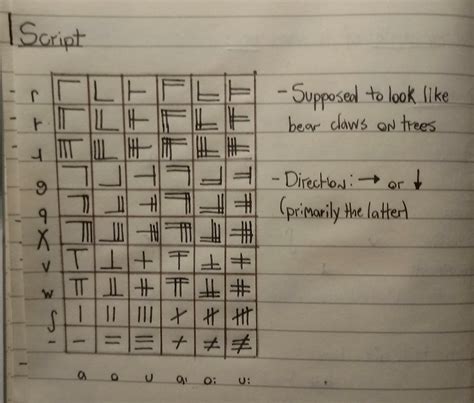 Script
- Supposed to look like
bear claws on trees
- Direction: → or ↓
(primarily the latter)
r
g
q
X
v
w
ʃ
-
a o u a: o: u: